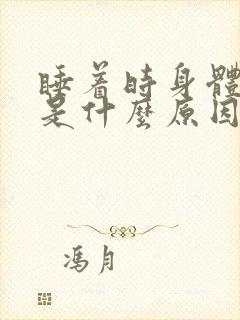 睡着时身體
是什麼原因
馮月